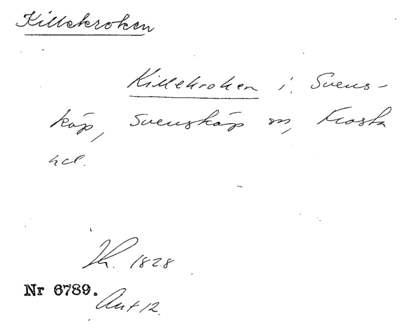 Killekroken
Killekroken i Svens-
köp, Svensköp sn, Frosta
hd.
Th. 1828
Nr 6789.
Ant 12.